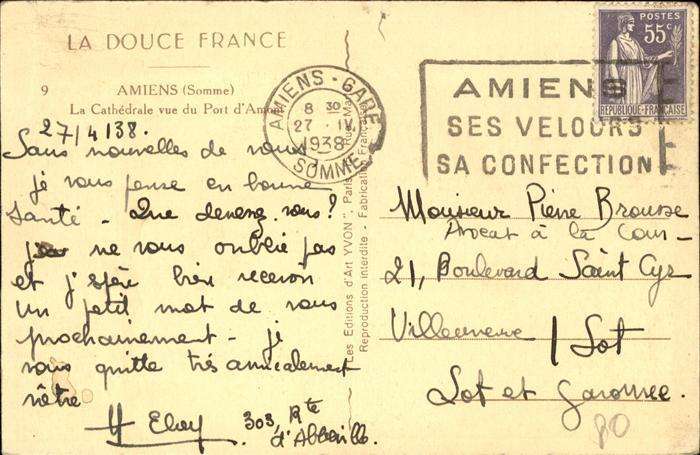 LA DOUCE FRANCE
9 AMIENS (Somme)
La Cathédrale vue du Port d'Amont
27/4/38.
Sans nouvelles de vous
je vous pense en bonne
santé - Que devenez vous?
je ne vous oublie pas
et j'espère bien recevoir
un petit mot de vous
prochainement - je
vous quitte très amicalement
vôtre
H Eloy 303, Rte
d'Abbeville.
Les Editions d'Art "YVON", Paris
Reproduction interdite. - Fabrication Française
AMIENS - GARE
8 30
27 - IV
1938
SOMME
AMIENS
SES VELOURS
SA CONFECTION
POSTES
55c
REPUBLIQUE FRANÇAISE
Monsieur Pierre Brousse
Avocat à la Cour -
21, Boulevard Saint Cyr
Villeneuve / Lot
Lot et Garonne.
80